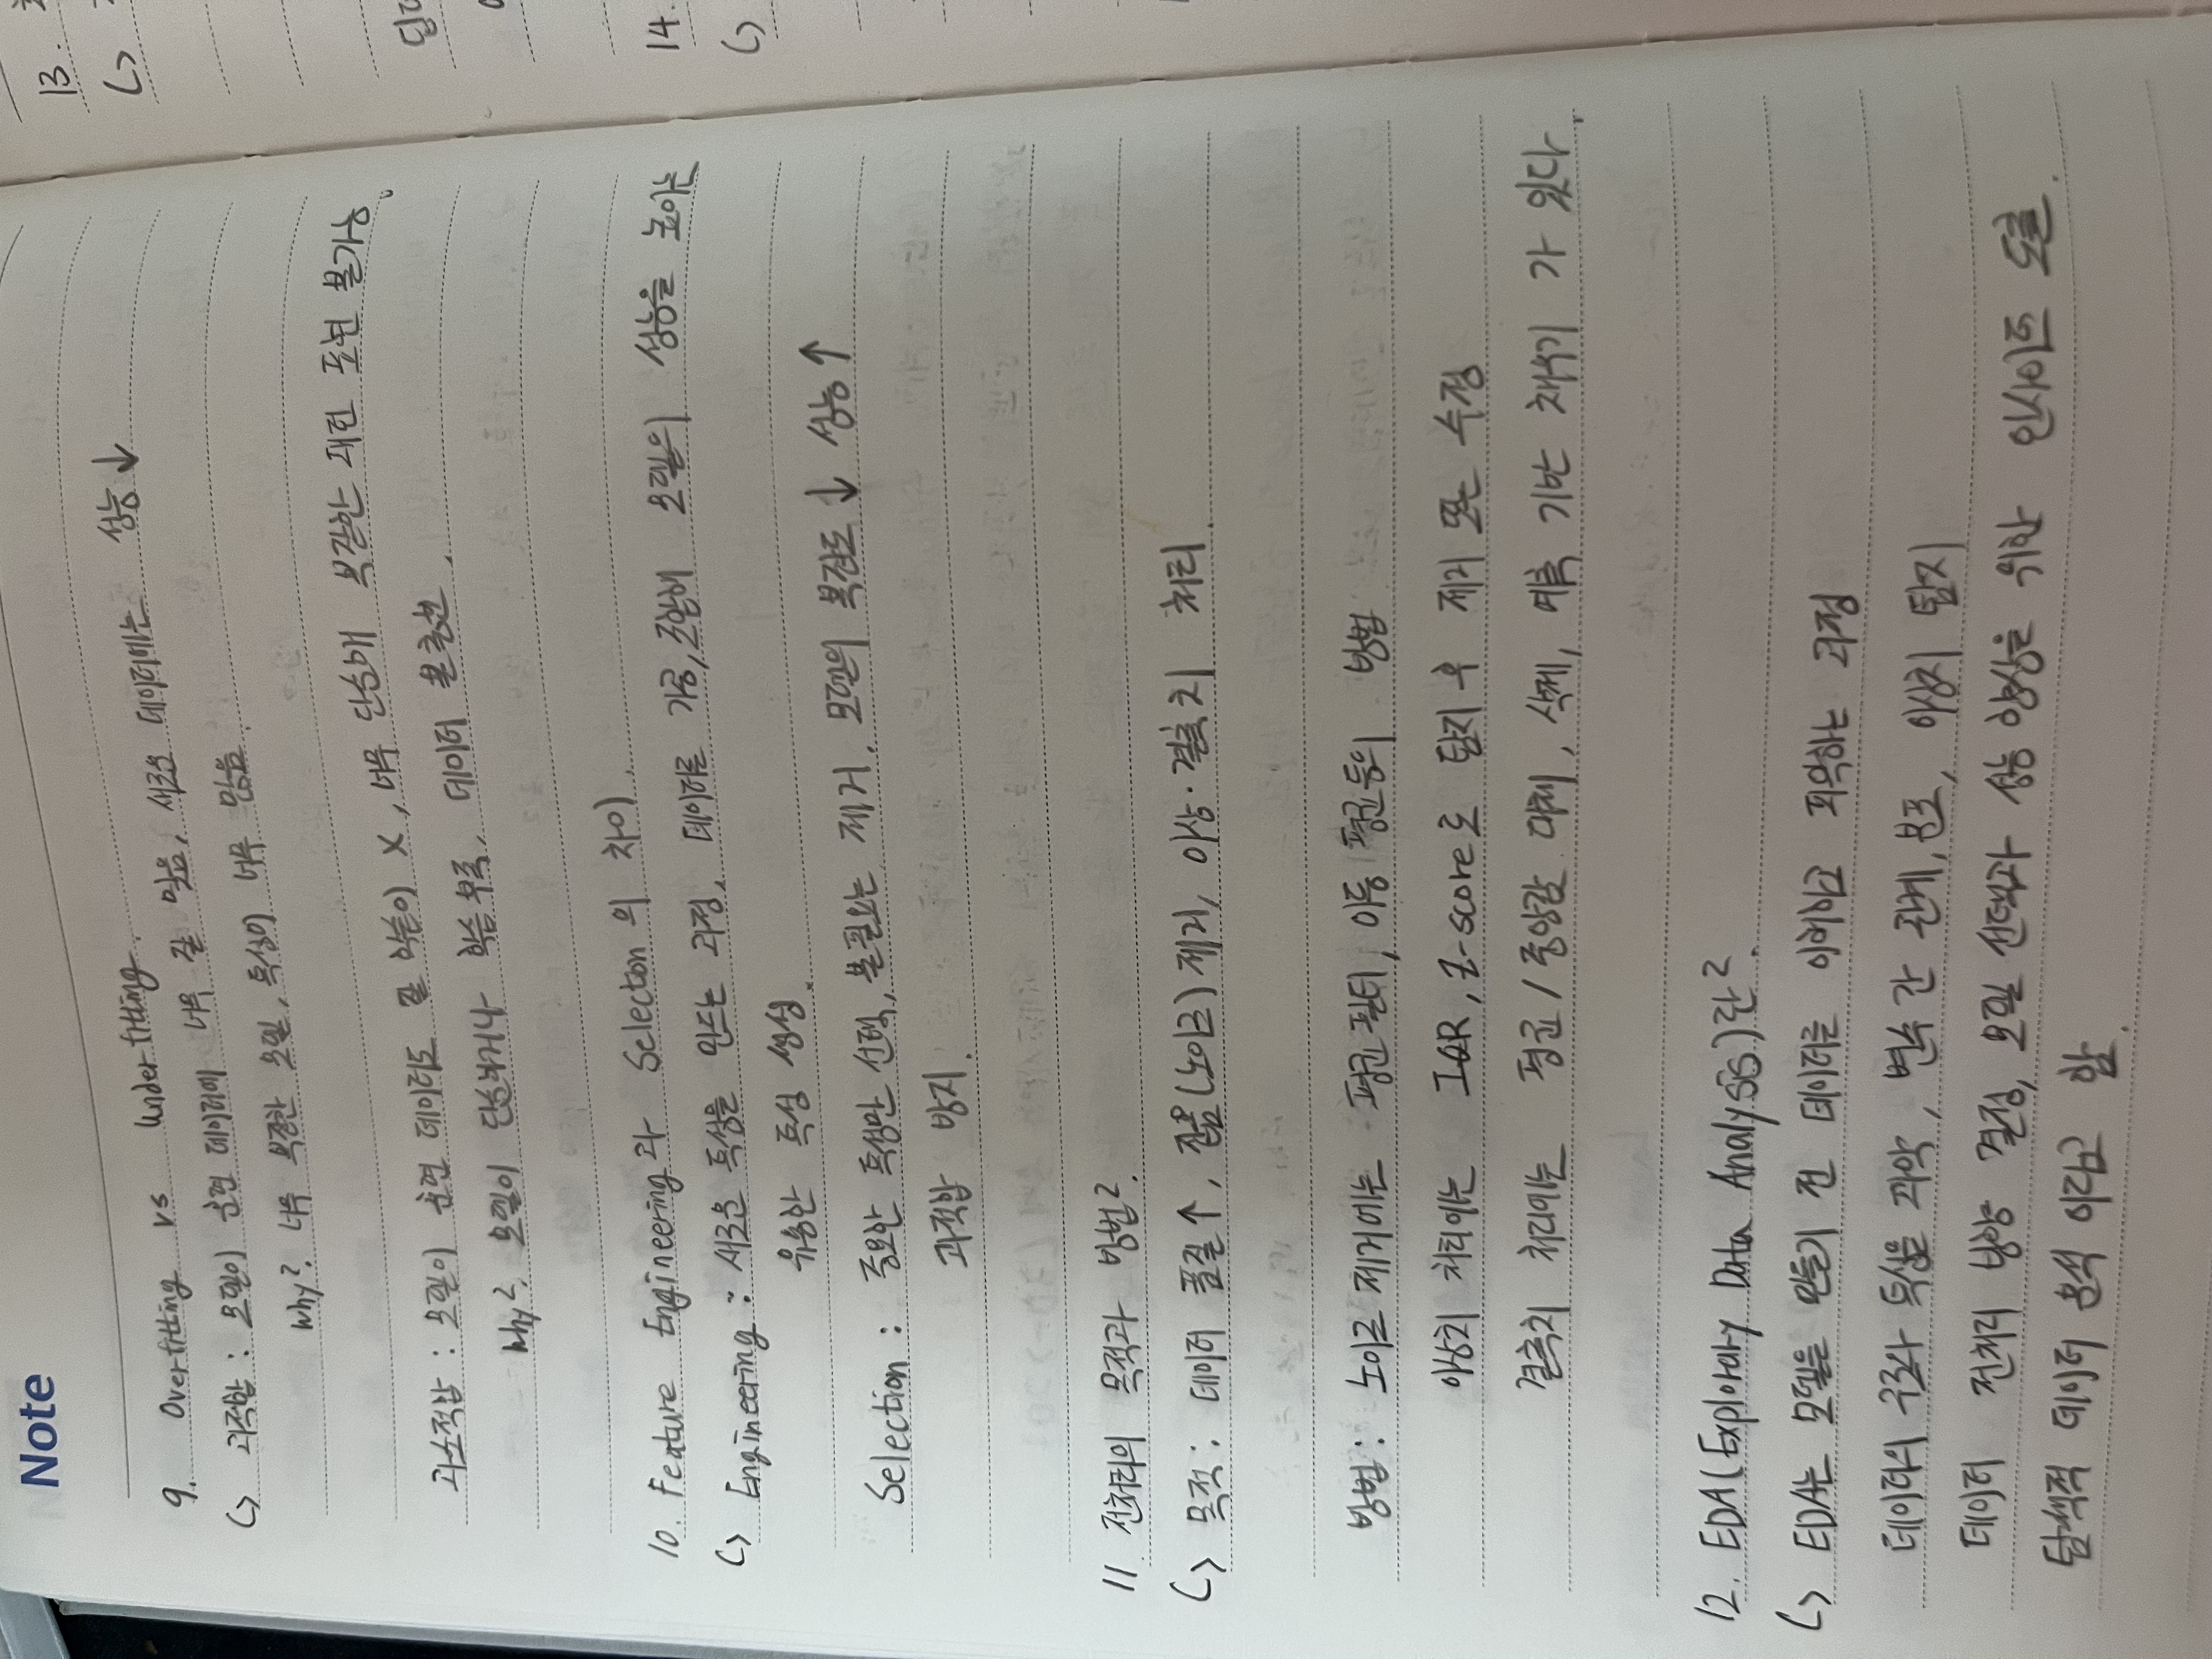 Note
9. Overfitting vs Underfitting.
↳ 과적합 : 모델이 훈련 데이터에 너무 잘 맞음, 새로운 데이터에는 성능 ↓
Why? 너무 복잡한 모델, 특성이 너무 많음.
과소적합 : 모델이 훈련 데이터도 잘 학습이 X, 너무 단순해 복잡한 패턴 표현 불가능.
Why? 모델이 단순하거나 학습 부족, 데이터 불충분.
10. Feature Engineering과 Selection의 차이.
↳ Engineering : 새로운 특성을 만드는 과정, 데이터를 가공, 조합해 모델의 성능을 높이는
유용한 특성 생성.
Selection : 중요한 특성만 선택, 불필요는 제거. 모델의 복잡도 ↓ 성능 ↑
과적합 방지.
11. 전처리의 목적과 방법?
↳ 목적 : 데이터 품질 ↑, 잡음(노이즈) 제거, 이상·결측치 처리.
방법 : 노이즈 제거에는 평균 필터, 이동 평균 등의 방법
이상치 처리에는 IQR, Z-score로 탐지 후 제거 또는 수정
결측치 처리에는 평균 / 중앙값 대체, 삭제, 예측 기반 채우기 가 있다.
12. EDA(Explorary Data Analysis)란?
↳ EDA는 모델을 만들기 전 데이터를 이해하고 파악하는 과정
데이터의 구조와 특성을 파악, 변수 간 관계, 분포, 이상치 탐지
데이터 전처리 방향 결정, 모델 선택과 성능 향상을 위한 인사이트 도출.
탐색적 데이터 분석 이라고 함.
13.
↳
14.
↳